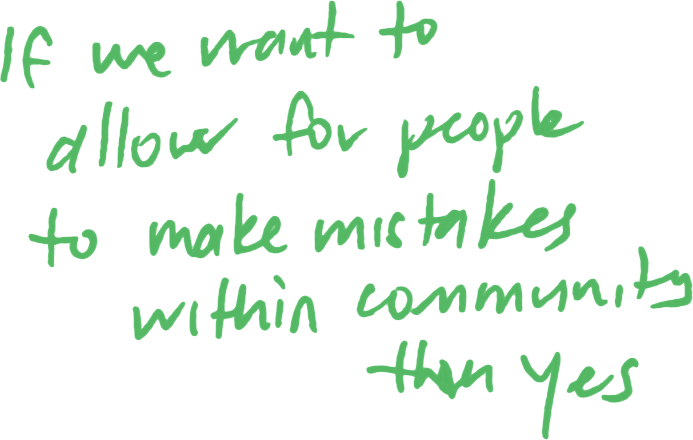 If we want to
allow for people
to make mistakes
within community
then yes